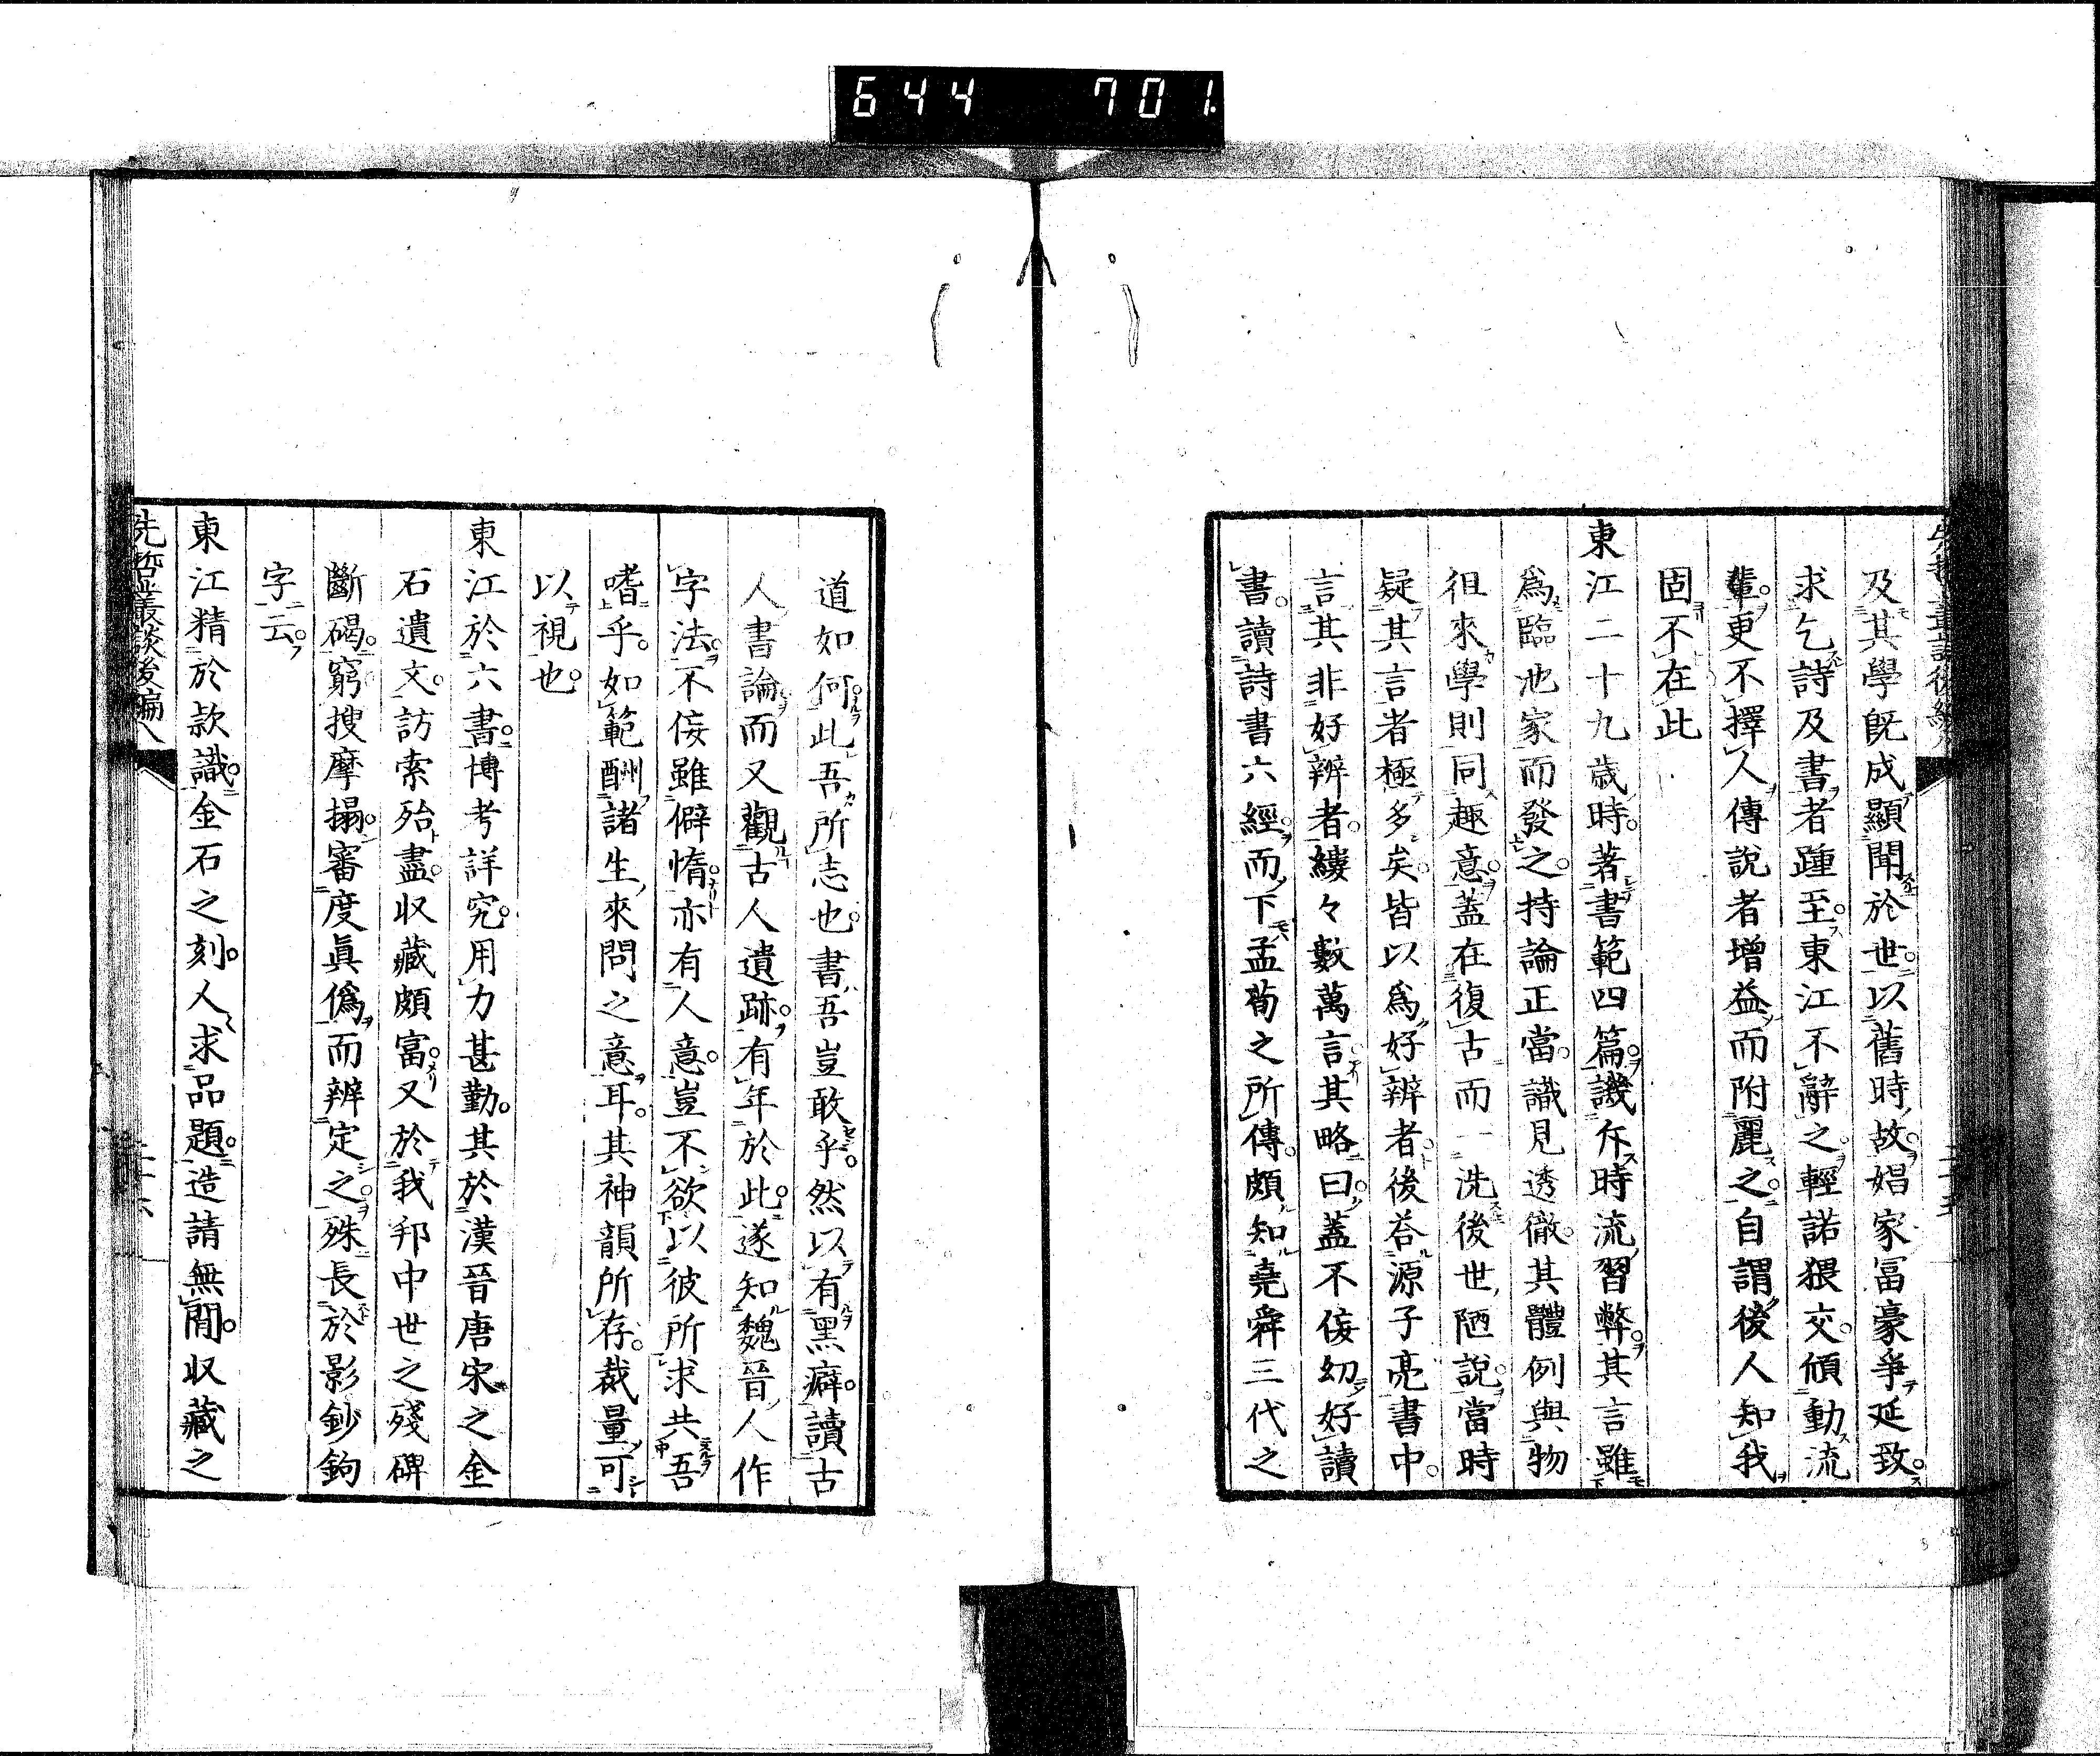 644 701
及其學既成顯聞於世以舊時故娼家冨豪爭延致
求乞詩及書者踵至東江不辭之輕諾猥交傾動流
輩更不擇人傳說者增益而附麗之自謂後人知我
固不在此
東江二十九歲時著書範四篇譏斥時流習弊其言雖
爲臨池家而發之持論正當識見透徹其體例與物
徂來學則同趣意蓋在復古而一洗後世陋說當時
疑其言者極多矣皆以爲好辨者後答源子亮書中
言其非好辨者縷々數萬言其略曰蓋不侫幼好讀
書讀詩書六經而下孟荀之所傳頗知堯舜三代之
道如何此吾所志也書吾豈敢乎然以有黑癖讀古
人書論而又觀古人遺跡有年於此遂知魏晉人作
字法不侫雖僻惰亦有人意豈不欲以彼所求共吾
嗜乎如範酬諸生來問之意耳其神韻所存裁量可
以視也
東江於六書博考詳究用力甚勤其於漢晉唐宋之金
石遺文訪索殆盡収藏頗富又於我邦中世之殘碑
斷碣窮搜摩搨審度眞僞而辨定之殊長於影鈔鉤
字云
東江精於款識金石之刻人求品題造請無間収藏之
先哲叢談後編八